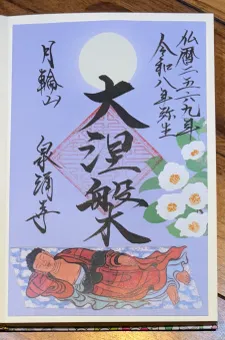 仏暦二五六九年
令和八年弥生
大涅槃
月輪山
泉涌寺